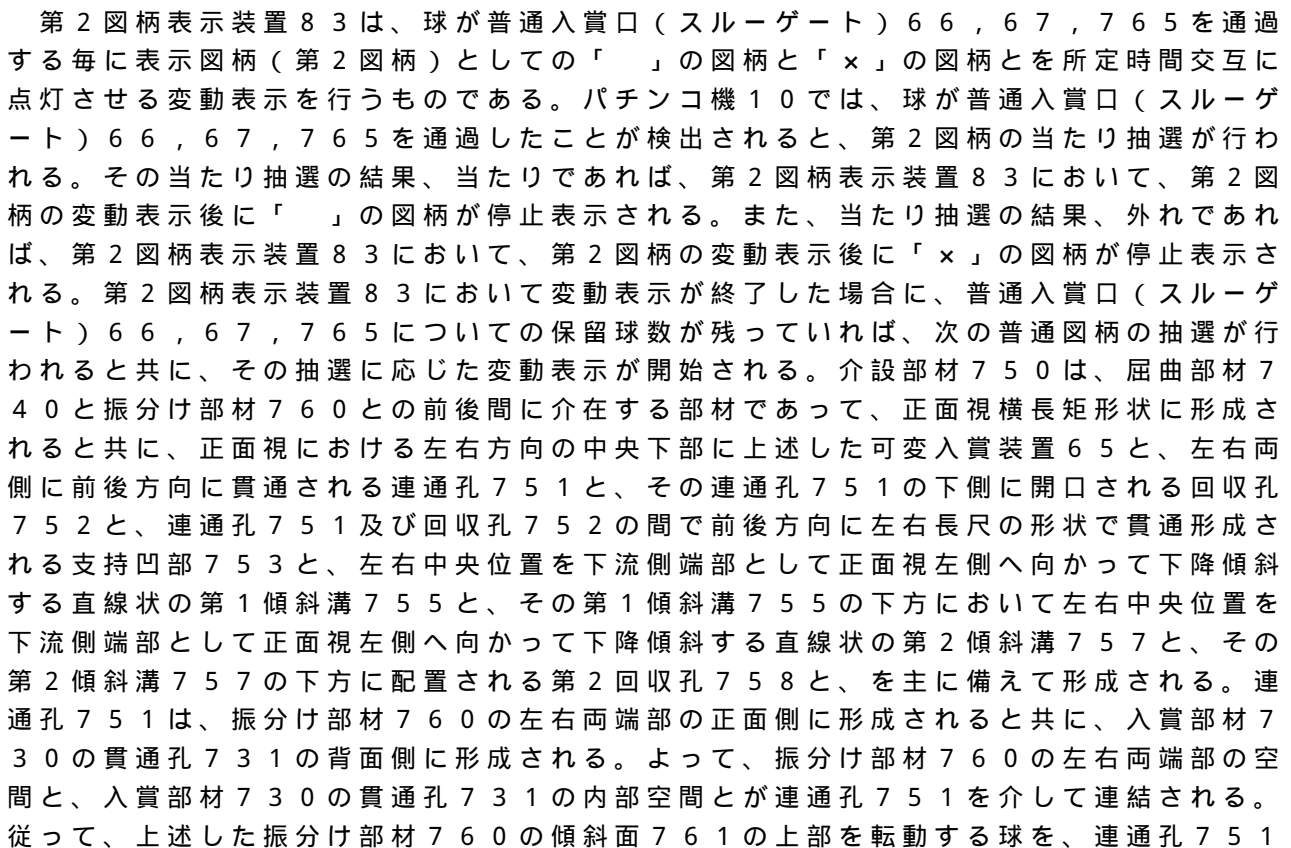 第２図柄表示装置８３は、球が普通入賞口（スルーゲート）６６，６７，７６５を通過
する毎に表示図柄（第２図柄）としての「　」の図柄と「×」の図柄とを所定時間交互に
点灯させる変動表示を行うものである。パチンコ機１０では、球が普通入賞口（スルーゲ
ート）６６，６７，７６５を通過したことが検出されると、第２図柄の当たり抽選が行わ
れる。その当たり抽選の結果、当たりであれば、第２図柄表示装置８３において、第２図
柄の変動表示後に「　」の図柄が停止表示される。また、当たり抽選の結果、外れであれ
ば、第２図柄表示装置８３において、第２図柄の変動表示後に「×」の図柄が停止表示さ
れる。第２図柄表示装置８３において変動表示が終了した場合に、普通入賞口（スルーゲ
ート）６６，６７，７６５についての保留球数が残っていれば、次の普通図柄の抽選が行
われると共に、その抽選に応じた変動表示が開始される。介設部材７５０は、屈曲部材７
４０と振分け部材７６０との前後間に介在する部材であって、正面視横長矩形状に形成さ
れると共に、正面視における左右方向の中央下部に上述した可変入賞装置６５と、左右両
側に前後方向に貫通される連通孔７５１と、その連通孔７５１の下側に開口される回収孔
７５２と、連通孔７５１及び回収孔７５２の間で前後方向に左右長尺の形状で貫通形成さ
れる支持凹部７５３と、左右中央位置を下流側端部として正面視左側へ向かって下降傾斜
する直線状の第１傾斜溝７５５と、その第１傾斜溝７５５の下方において左右中央位置を
下流側端部として正面視左側へ向かって下降傾斜する直線状の第２傾斜溝７５７と、その
第２傾斜溝７５７の下方に配置される第２回収孔７５８と、を主に備えて形成される。連
通孔７５１は、振分け部材７６０の左右両端部の正面側に形成されると共に、入賞部材７
３０の貫通孔７３１の背面側に形成される。よって、振分け部材７６０の左右両端部の空
間と、入賞部材７３０の貫通孔７３１の内部空間とが連通孔７５１を介して連結される。
従って、上述した振分け部材７６０の傾斜面７６１の上部を転動する球を、連通孔７５１